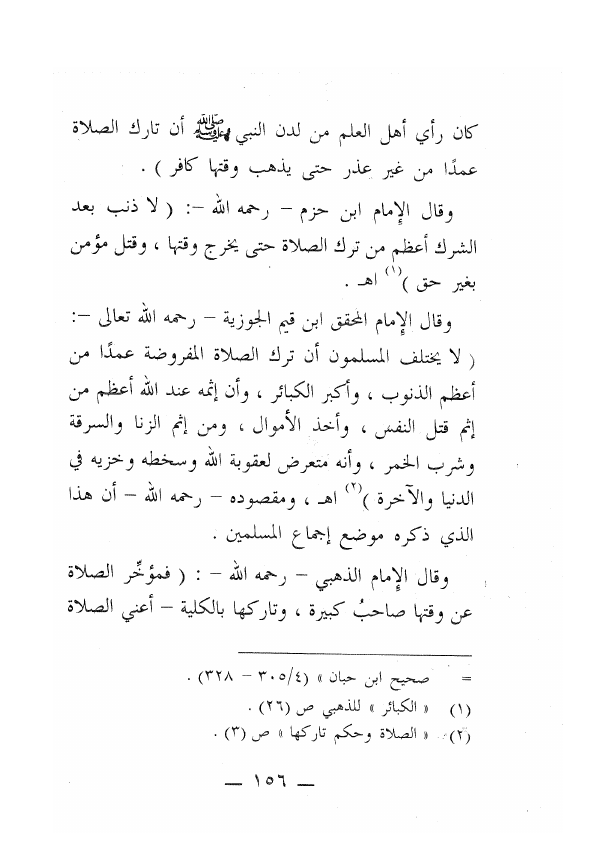 كان رأي أهل العلم من لدن النبي ﷺ أن تارك الصلاة
عمدًا من غير عذر حتى يذهب وقتها كافر ) .
وقال الإمام ابن حزم – رحمه الله –: ( لا ذنب بعد
الشرك أعظم من ترك الصلاة حتى يخرج وقتها ، وقتل مؤمن
بغير حق )(١) اهـ .
وقال الإمام المحقق ابن قيم الجوزية – رحمه الله تعالى –:
( لا يختلف المسلمون أن ترك الصلاة المفروضة عمدًا من
أعظم الذنوب ، وأكبر الكبائر ، وأن إثمه عند الله أعظم من
إثم قتل النفس ، وأخذ الأموال ، ومن إثم الزنا والسرقة
وشرب الخمر ، وأنه متعرض لعقوبة الله وسخطه وخزيه في
الدنيا والآخرة )(٢) اهـ ، ومقصوده – رحمه الله – أن هذا
الذي ذكره موضع إجماع المسلمين .
وقال الإمام الذهبي – رحمه الله – : ( فمؤخِّر الصلاة
عن وقتها صاحبُ كبيرة ، وتاركها بالكلية – أعني الصلاة
= صحيح ابن حبان » (٤/٣٠٥ – ٣٢٨) .
(١) « الكبائر » للذهبي ص (٢٦) .
(٢) « الصلاة وحكم تاركها » ص (٣) .
— ١٥٦ —